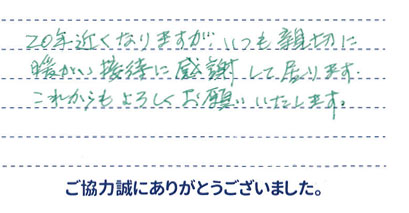 20年近くなりますが、いつも親切に
暖かい接待に感謝して居ります.
これからもよろしくお願いいたします。
ご協力誠にありがとうございました。